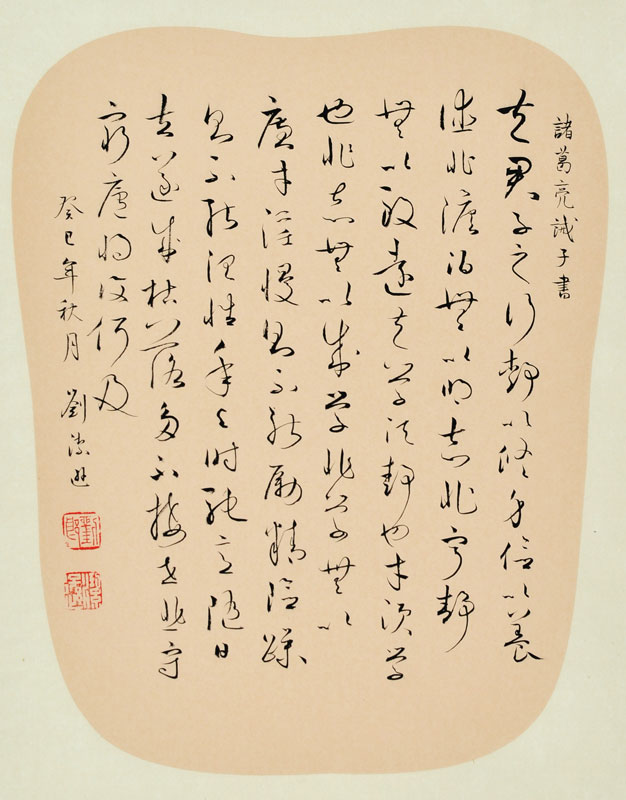 諸葛亮誡子書
夫君子之行靜以修身儉以養
德非澹泊無以明志非寧靜
無以致遠夫學須靜也才須學
也非志無以成學非學無以
廣才淫慢則不能勵精險躁
則不能理性年與時馳意隨日
去遂成枯落多不接世悲守
窮廬將復何及
癸巳年秋月 劉